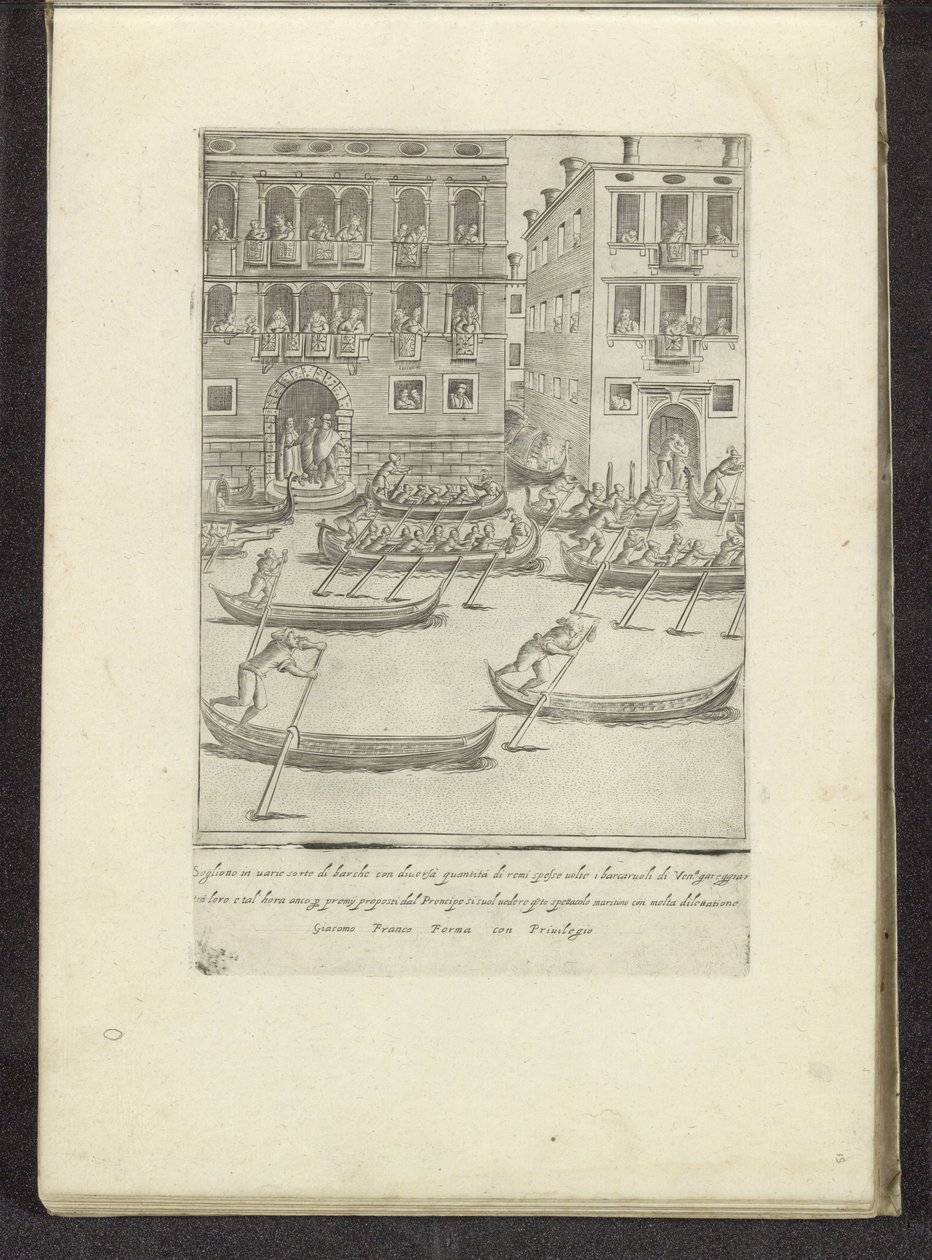 Sogliono in uarie sorte di barche con diuersa quantità di remi spesse uolte i barcaruoli di Ven.ª gareggiar
trà loro e tal hora anco ꝑ premij proposti dal Prencipe si suol uedere q̃sto spettacolo maritimo con molta dilettatione
Giacomo Franco Forma con Priuilegio